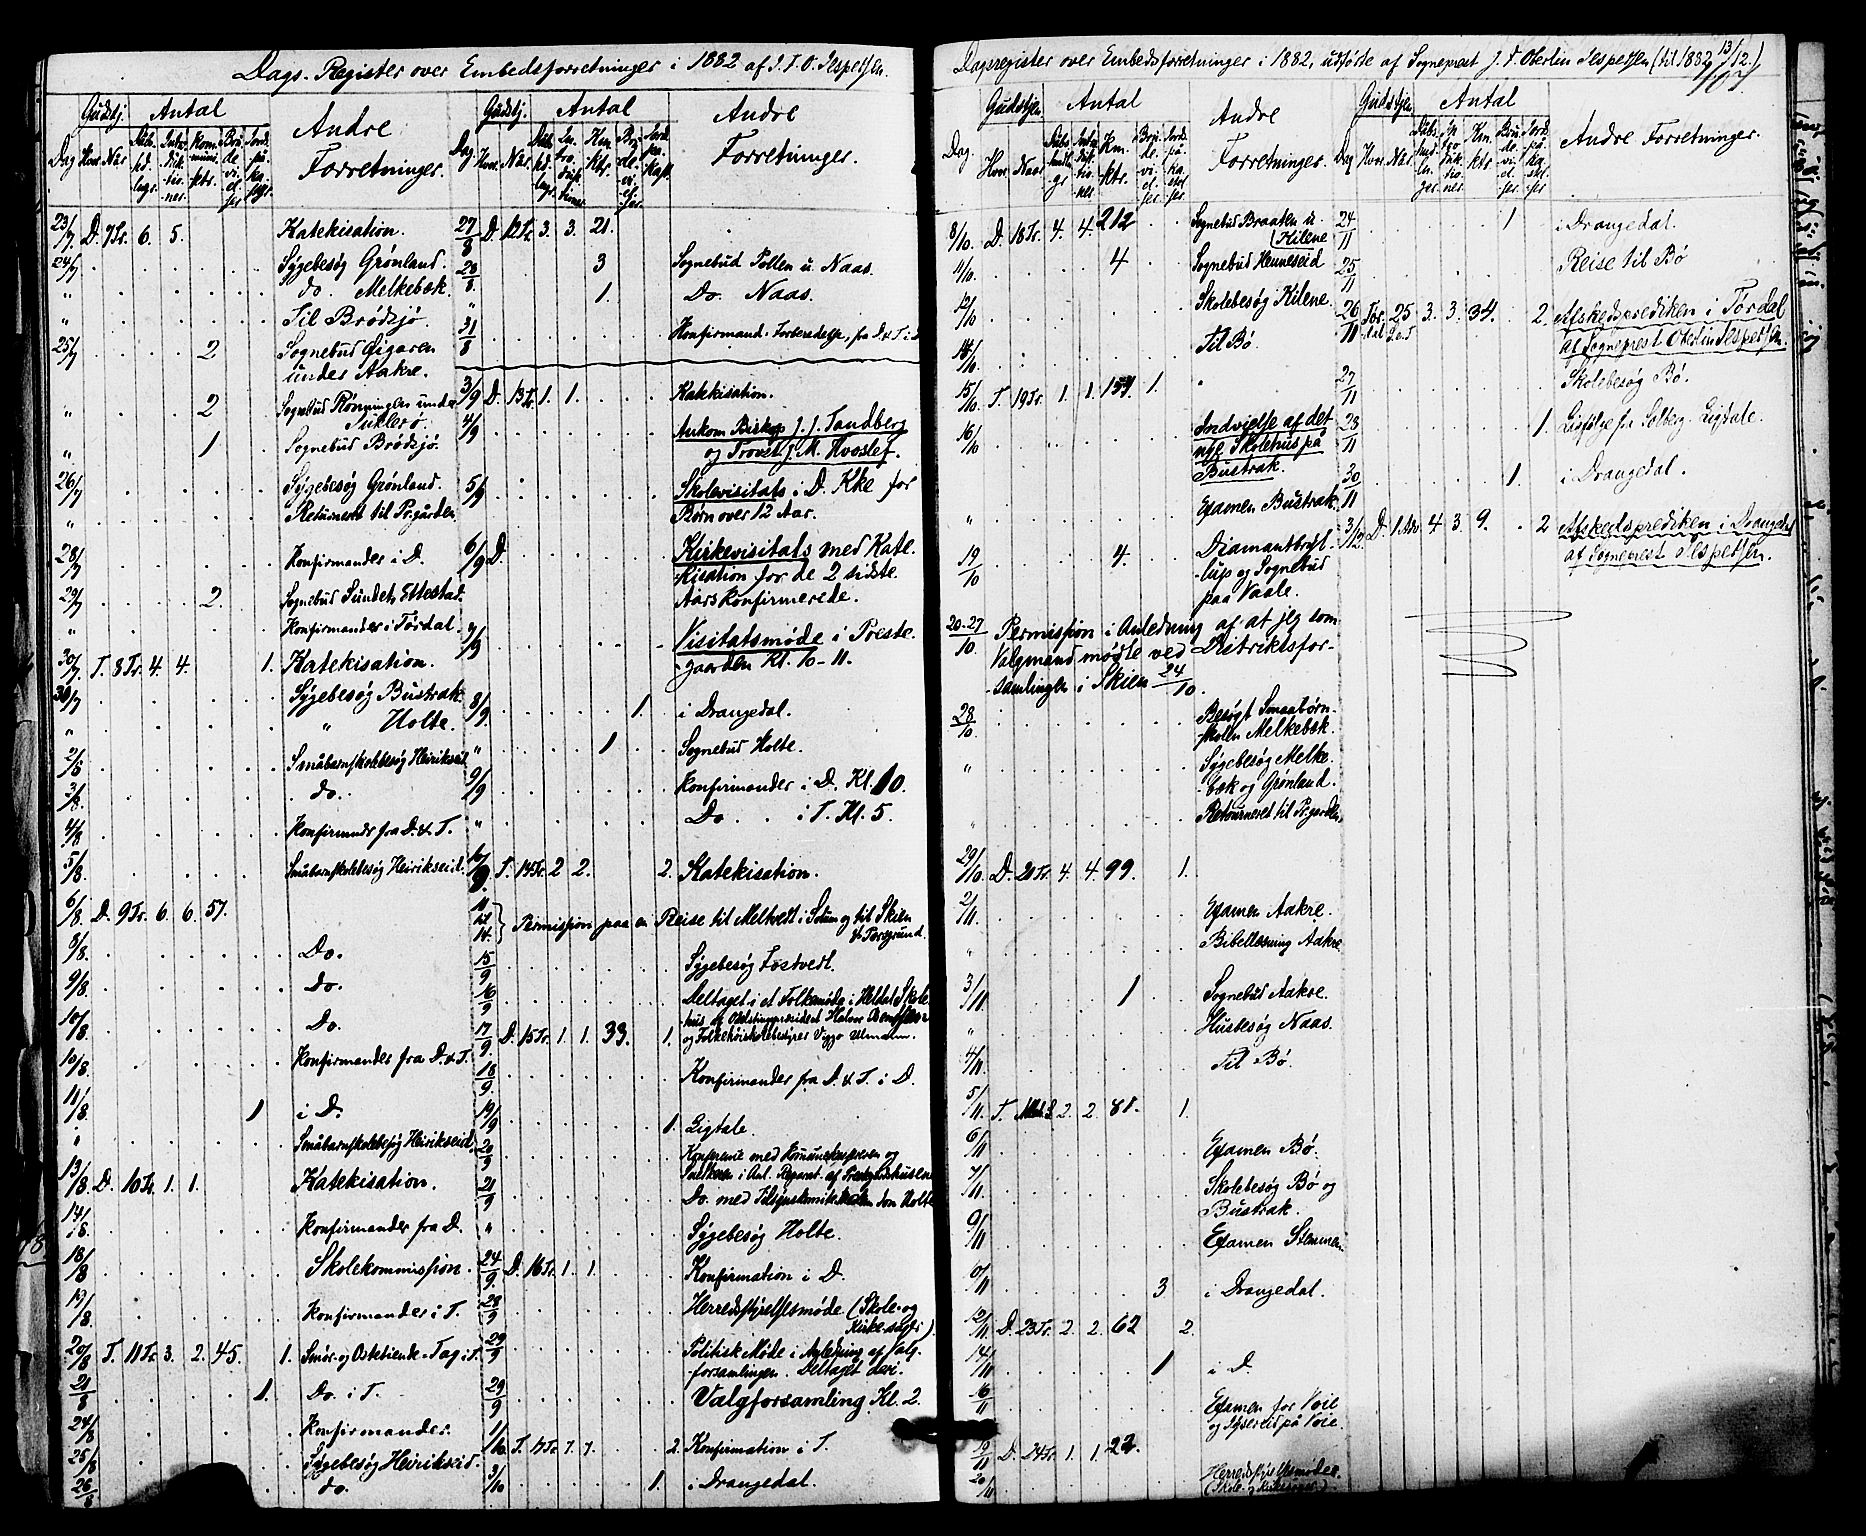 Dags-Register over Embedsforretninger i 1882 af J. F. O. Jespersen.
Gudstj. Antal Andre Forretninger.
Dag Hvor Naar
23/7 D. 7 Tr. 6. 5. Katekisation.
24/7 Sygebesøg Grønland.
" do. Melkebæk.
" Til Brødsjø.
25/7 2 Sognebud Øigaren
under Aakre.
" 2 Sognebud Rønningen under
" 1 Sognebud Brødsjø.
26/7 Sygebesøg Grønland.
" Returneret til Pr.gården
28/7 Konfirmander i D.
29/7 2. Sognebud Sundet, Ettestad.
" Konfirmander i Tørdal.
30/7 T. 8 Tr. 4. 4. 1. Katekisation.
30/7 Sygebesøg Bustrak
" " Holte.
2/8 Småbarnskolebesøg Heirikseid
3/8. do.
4/8 Konfirmander fra D. & T.
5/8. Småbarnskolebesøg Heirikseid.
6/8. D. 9 Tr. 6. 6. 57.
8/8. Do.
9/8. Do.
10/8. Do.
10/8. Konfirmander fra D. & T.
11/8. 1 i D.
" Småbarnskolebesøg Heirikseid
13/8 D. 10 Tr. 1. 1. Katekisation.
14/8 Konfirmander fra D.
18/8 Skolekommission.
19/8. Konfirmander i T.
20/8 T. 11 Tr. 3. 2. 45. 1. Smør- og Ostetiende-Tag. i T.
21/8 1. Do. i T.
24/8 Konfirmander.
25/8 Sygebesøg Heirikseid.
26/8 do.
Gudstj. Antal Andre Forretninger.
Dag Hvor Naar
27/8 D. 12 Tr. 3. 3. 21.
28/8 3 Sognebud Tollen u. Naas.
" 1. Do. Naas.
31/8 Konfirmand-Forberedelse, fra D. & T. i D.
3/9 D. 13 Tr. 1. 1. Katekisation.
4/9 Ankom Biskop J. J. Tandberg
og Provst J. M. Hvoslef.
5/9 Skolevisitats i D. Kke for
Børn over 12 Aar.
6/9 D. Kirkevisitats med Kate-
kisation for de 2 sidste
Aars konfirmerede.
7/9 Visitatsmøde i Preste-
gaarden Kl. 10-11.
8/9 1. i Drangedal.
" 1 Sognebud Holte.
9/9 Konfirmander i D. Kl. 10.
" Do. i T. Kl. 5.
10/9. T. 14 Tr. 2 2. 2. Katekisation.
11 12 14. Permission paa en Reise til Meltvedt i Solum og til Skien
& Porsgrund.
15/9 Sygebesøg Tostvedt.
16/9 Deltaget i et Folkemøde i Heldal Skole-
hus af Odelstingspræsident Halvor
17/9. D. 15 Tr. 1. 1. 33. 1. og Folkehøiskolebestyrer Viggo Ullmann.
18/9. Konfirmander fra D. & T. i D.
19/9 1. Ligtale.
20/9 Konferance med og
i Anl. Reparat. af Prestegårdshusene
21/9 Do. med Holte
" Sygebesøg Holte.
24/9. D. 16 Tr. 1. 1. Konfirmation i D.
28/9 Herredsstyrelsesmøde (Skole- og
Kirke-sager)
29/9 Politisk Møde i Anledning af Valg-
forsamlingen. Deltaget deri.
29/9 Valgforsamling Kl. 2.
1/10 T. 17 Tr. 7. 7. 2. Konfirmation i T.
3/10 1. i Drangedal.
Dagsregister over Embedsforretninger i 1882, utførte af Sogneprest J. F. Oberlin Jespersen (til 1882 13/12.)
107.
Gudstjen. Antal Andre Forretninger.
Dag. Hvor Naar
8/10. D. 18 Tr. 4. 4. 212 Sognebud Braaten u.
(Kilene
11/10. 4 Sognebud Henneseid
12/10 Skolebesøg Kilene.
14/10 Til Bø.
15/10 T. 19 Tr. 1. 1. 157. 1. "
16/10 Indvielse af det
nye Skolehus på
Bustrak.
" Examen Bustrak.
19/10 4. Diamantbryl-
lup og Sognebud
paa Vaale.
20-27/10. Permission i Anledning af at jeg som
Valgmand mødte ved Distriktsfor-
samlingen i Skien 24/10.
28/10 Besøgt Smaabørn-
skolen Melkebæk.
" Sygebesøg Melke-
bæk og Grønland.
" Returneret til Pr.garden
29/10 D. 20 Tr. 4. 4. 99. 1.
2/11. Examen Aakre.
" Bibellæsning Aakre
3/11 1 Sognebud Aakre.
" Husbesøg Naas.
4/11 Til Bø.
5/11 T. 2. 2. 81. 1.
6/11 Examen Bø.
7/11 Skolebesøg Bø og
Bustrak.
9/11 Examen Stemmen.
3 i Drangedal.
12/11 D. 23 Tr. 2. 2. 62 2.
14/11 1 i D.
16/11 Examen for Voie
på Voie.
19/11 D. 24 Tr. 1. 1. 22.
20/11 Herredsstyrelsesmøde.
Gudstjen Antal Andre Forretninger.
Dag Hvor Når.
24/11 1 i Drangedal.
25/11 Reise til Bø
26/11 Tørdal 25 3. 3. 34. 2. Afskedsprediken i Tørdal
af Sogneprest Oberlin Jespersen.
27/11 Skolebesøg Bø.
28/11 1. Ligfølge fra Solberg. Ligtale.
30/11 1. i Drangedal.
3/12. D. 1 Adv. 4 3 9. 2 Afskedsprediken i Drangedal
af Sogneprest Jespersen.